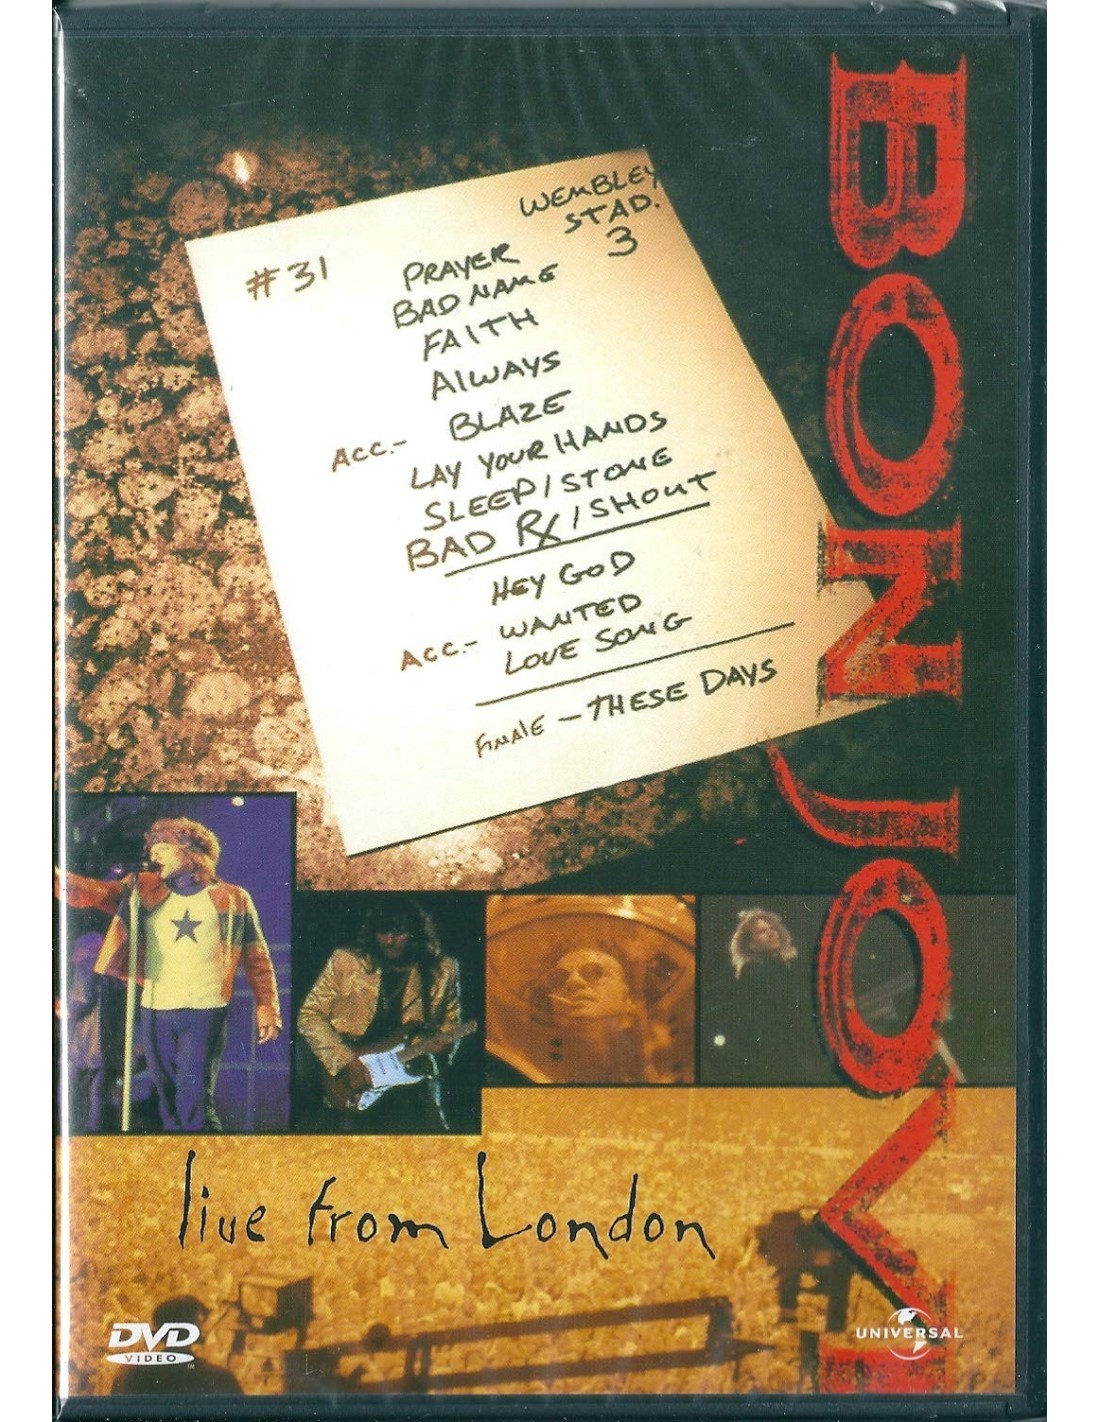 BON JOVI
WEMBLEY
STAD.
3
#31
PRAYER
BAD NAME
FAITH
ALWAYS
ACC.- BLAZE
LAY YOUR HANDS
SLEEP/STONE
BAD RX/SHOUT
HEY GOD
ACC.- WANTED
LOVE SONG
FINALE - THESE DAYS
live from London
DVD
VIDEO
TM
UNIVERSAL